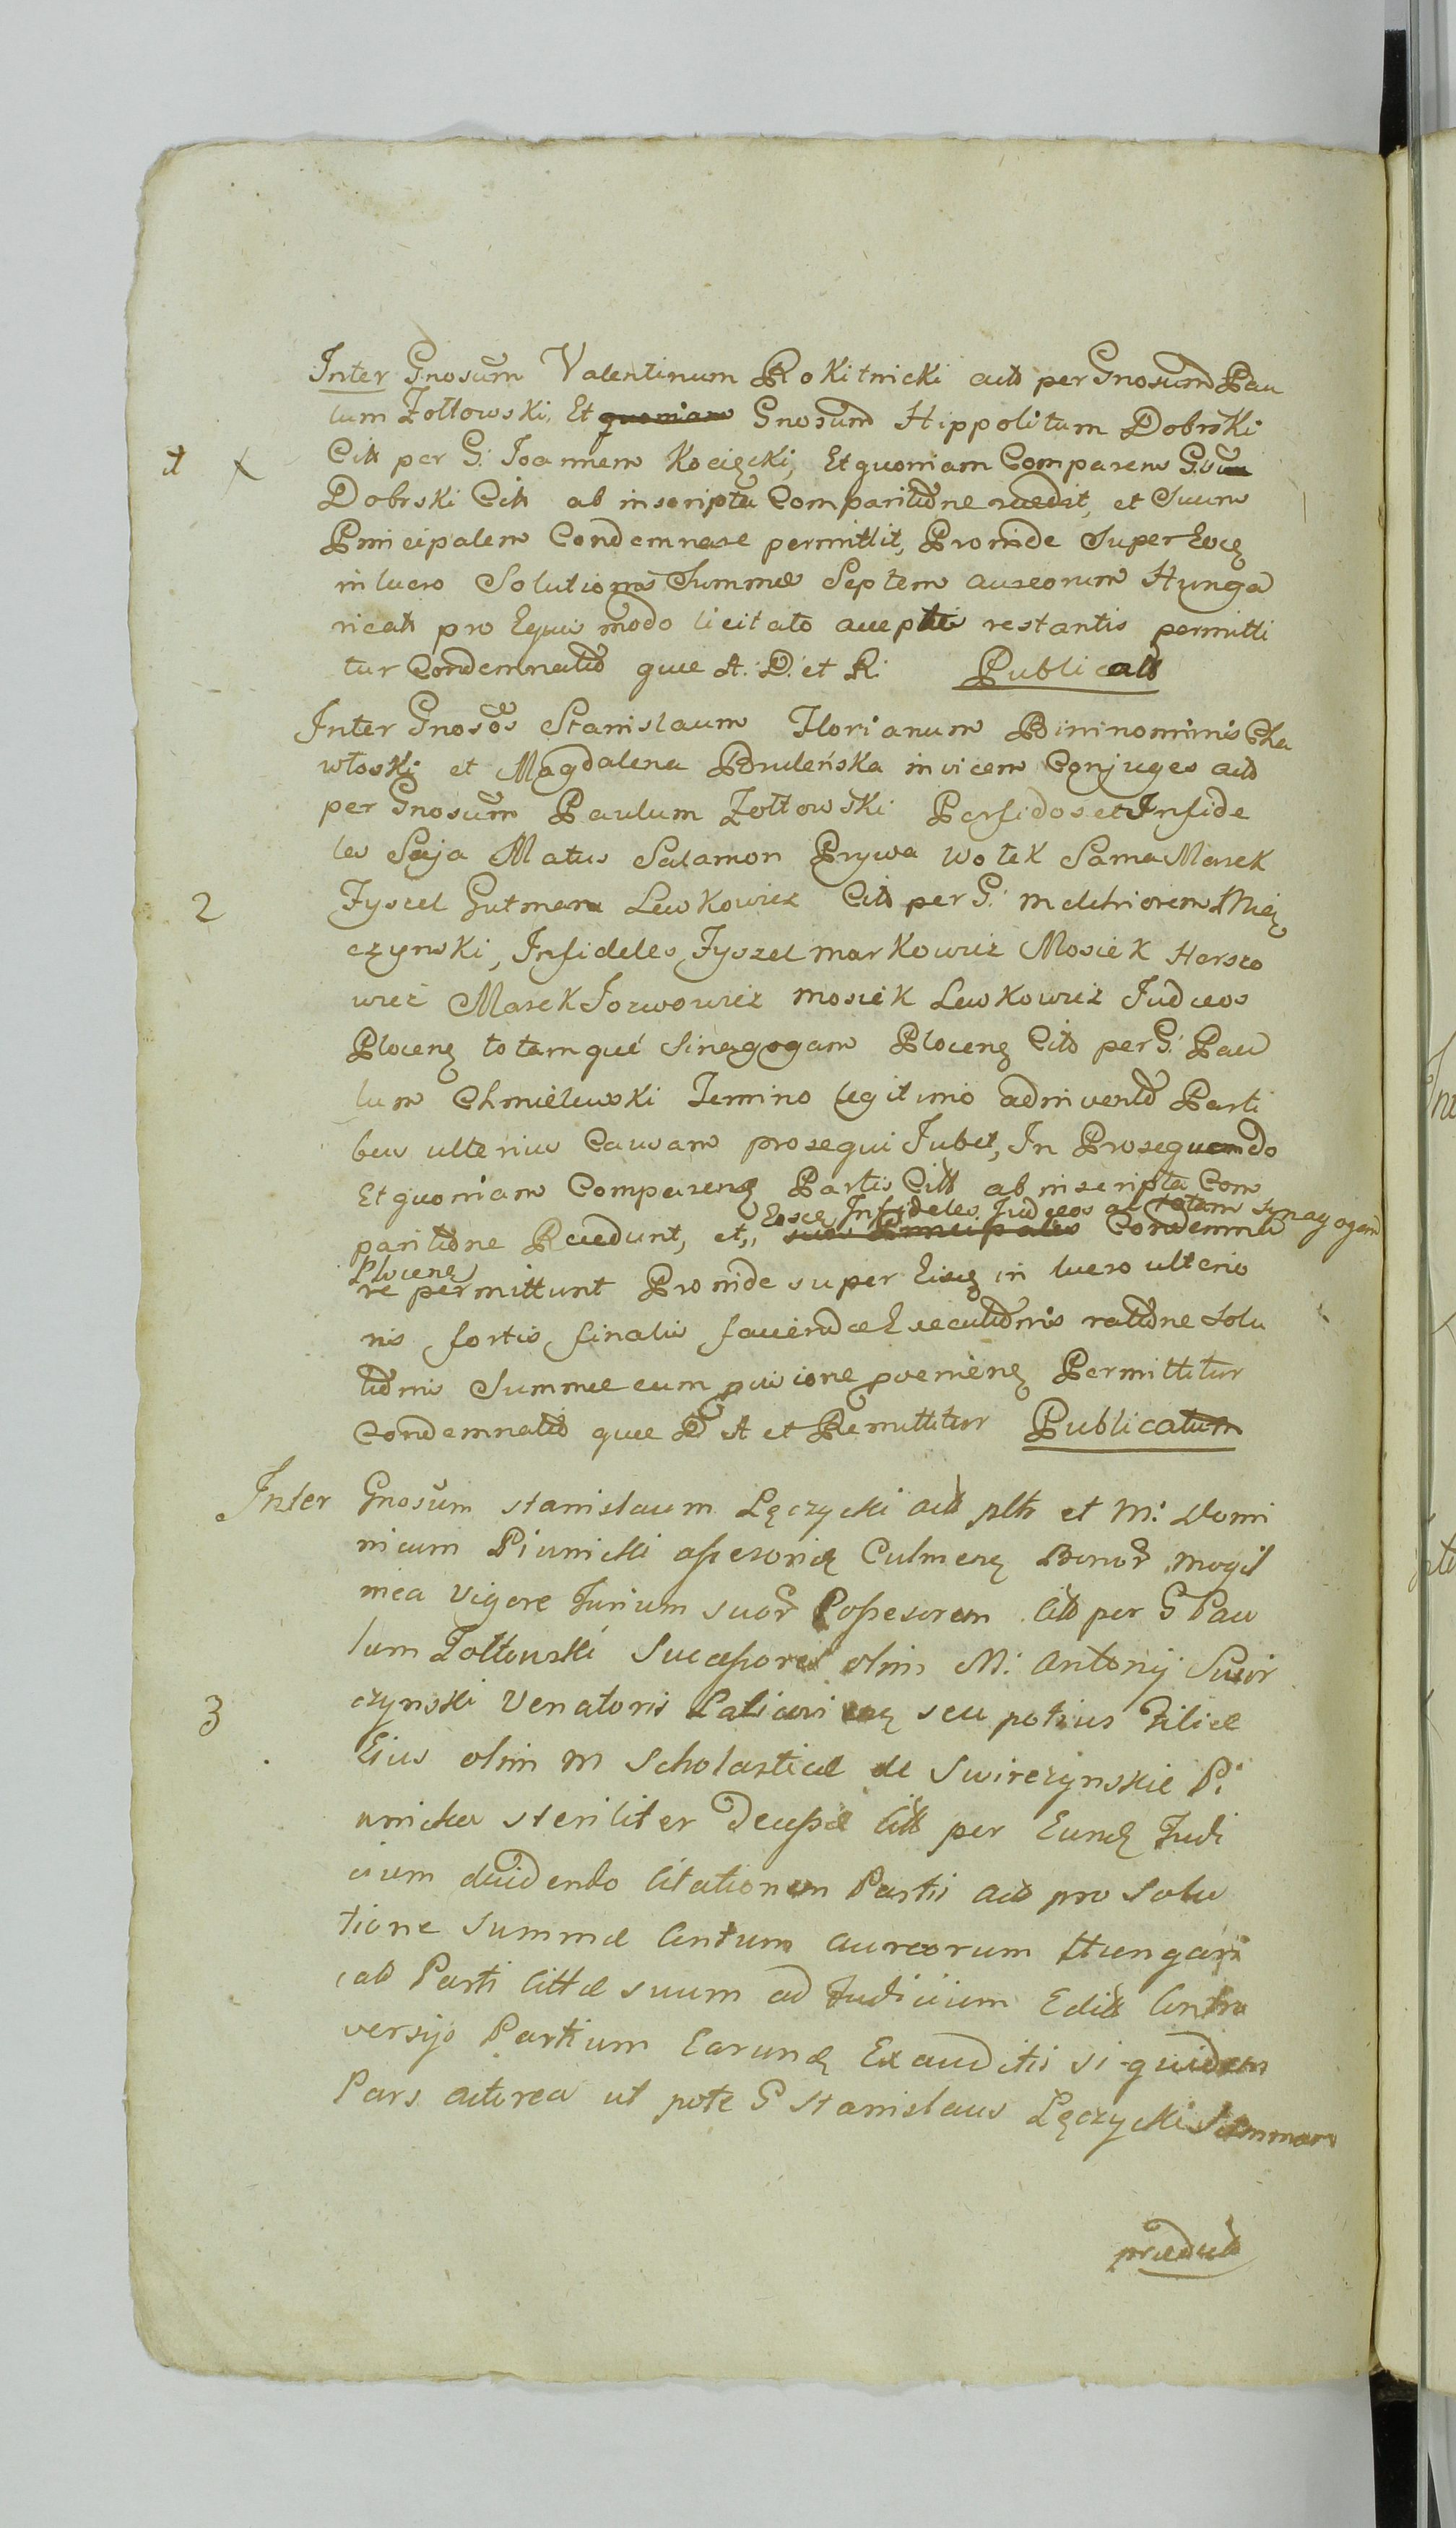 Inter Gnosum Valentinum Rokitnicki act per Gnosum Pau
lum Zołtowski, Et quoniam Gnosum Hippolitum Dobrski
1 x Citt per G: Joannem Kocięcki, Et quoniam Comparens
Dobrski Citt ab inscripta Comparitione recedit, et Suum
Principalem Condemnare permittit, Proinde Super Eocq
in lucro Solutionis Summae Septem aureorum Hunga
ricalt pro Equo modo licitato accepto restantis permitti
tur Condemnatio quae A: D: et R: Publicatt
Inter Gnosos Stanislaum Florianum Binnominis Cha
włoski et Magdalena Brudeńska invicem Conjuges act
per Gnosum Paulum Zołtowski Perfidos et Infide
les Saja Matus Salamon Prywa Wołek Sama Marek
2 Fyszel Gutmann Lewkowicz Citt per G: Melchiorem Mię
czynski, Infideles Fyszel Markowicz Mosiek Herszo
wicz Marek Jozwowicz Mosiek Lewkowicz Judaeos
Plocenq totamque Sinagogam Plocenq Citt per G: Pau
lum Chmielewski Termino legitimo adinvento Parti
bus ulterius Causam prosequi Jubet, In Prosequendo
Et quoniam Comparenq Partis Citt ab inscripta Com
Eoscq Infideles Judaeos ac totam Synagogam
paritione Recedunt, et,, suos Principales Condemna
Plocenq
re permittunt Proinde super Eiscq in lucro ulterio
ris fortis finalis faciendae Executionis ratione Solu
tionis Summae cum provenienq Permittitur
Condemnatio quae D A et Remittitur Publicatum
Inter Gnosum Stanislaum Lęczycki act plt et M: Domi
nicum Piwnicki assesorie Culmenq Bonor Mogil
nica Vigore Jurium suor Possesorem Citt per G Pau
lum Zołtowski Successores olim M: Antonij Swir
3 czynski Venatoris seu potius Filiae
Eius olim M Scholasticae de Swirczynskie Pi
wnicka steriliter Decessae Citt per Eundq Judi
cium decidendo Citationem Partis Act pro Solu
tione Summae Centum aureorum Hungari
calt Parti Cittae suum ad Judicium Editt Contro
versijs Partium Earundq Exauditis siquidem
Pars actorea ut pote G Stanislaus Lęczycki Summam
praedict